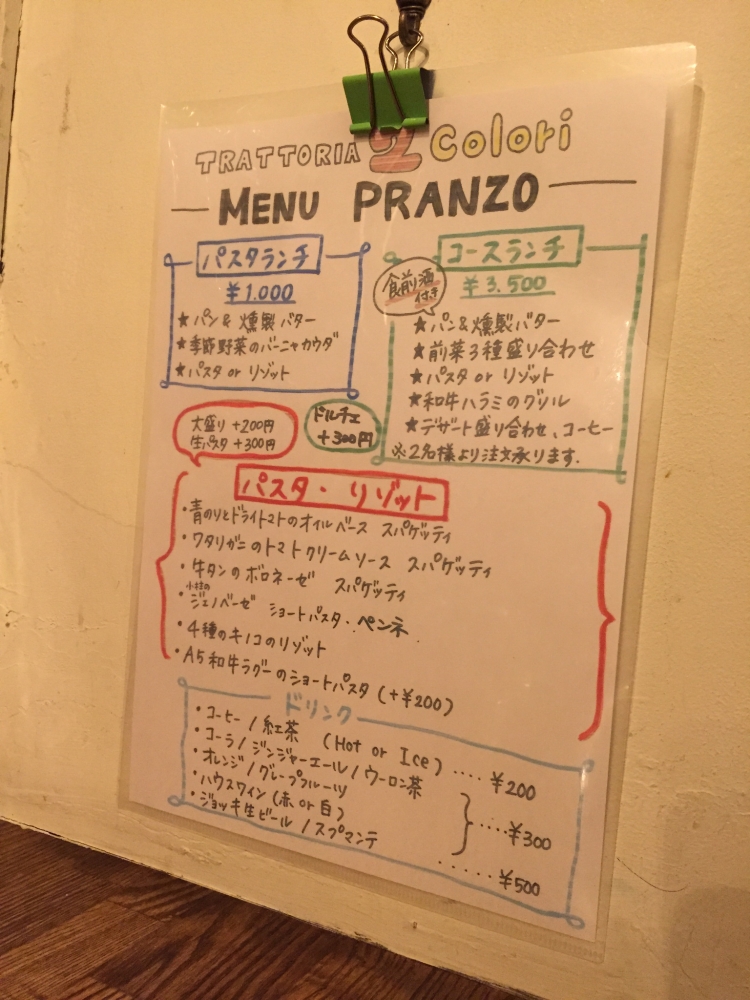 TRATTORIA 2 Colori
MENU PRANZO
パスタランチ
¥1.000
★パン&燻製バター
★季節野菜のバーニャカウダ
★パスタ or リゾット
コースランチ
食前酒
付き
¥3.500
★パン&燻製バター
★前菜3種盛り合わせ
★パスタ or リゾット
★和牛ハラミのグリル
★デザート盛り合わせ、コーヒー
※2名様より注文承ります.
大盛り +200円
生パスタ +300円
ドルチェ
+300円
パスタ・リゾット
・青のりとドライトマトのオイルベース スパゲッティ
・ワタリガニのトマトクリームソース スパゲッティ
・牛タンのボロネーゼ スパゲッティ
・ジェノベーゼ ショートパスタ・ペンネ
・4種のキノコのリゾット
・A5和牛ラグーのショートパスタ (+¥200)
ドリンク
・コーヒー / 紅茶 (Hot or Ice) .... ¥200
・コーラ / ジンジャーエール / ウーロン茶
・オレンジ / グレープフルーツ
....¥300
・ハウスワイン (赤 or 白)
・ジョッキ生ビール / スプマンテ
...... ¥500